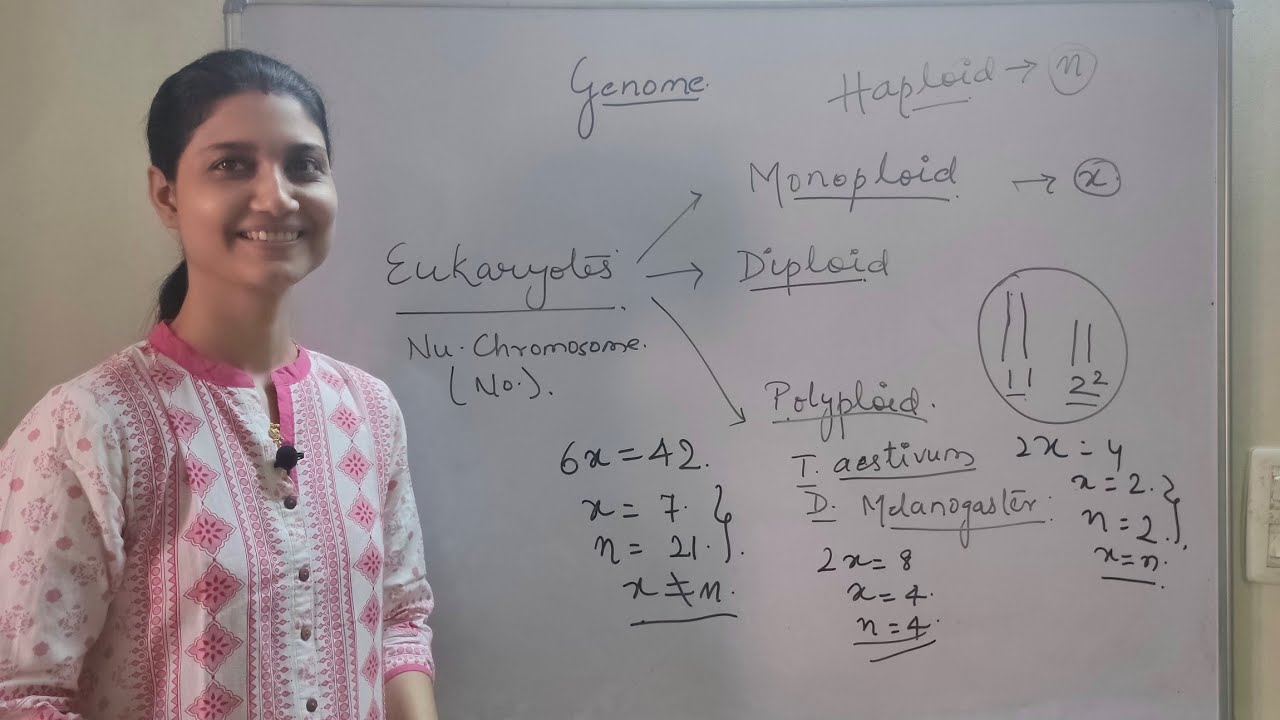 Genome.
Haploid → n
Monoploid → x
Eukaryotes
Diploid
Nu. Chromosome.
(No.).
1 1
2 2
Polyploid.
6x = 42.
x = 7.
n = 21.
x ≠ n.
T. aestivum
D. Melanogaster.
2x = 8
x = 4.
n = 4.
2x = 4
x = 2.
n = 2.
x = n.